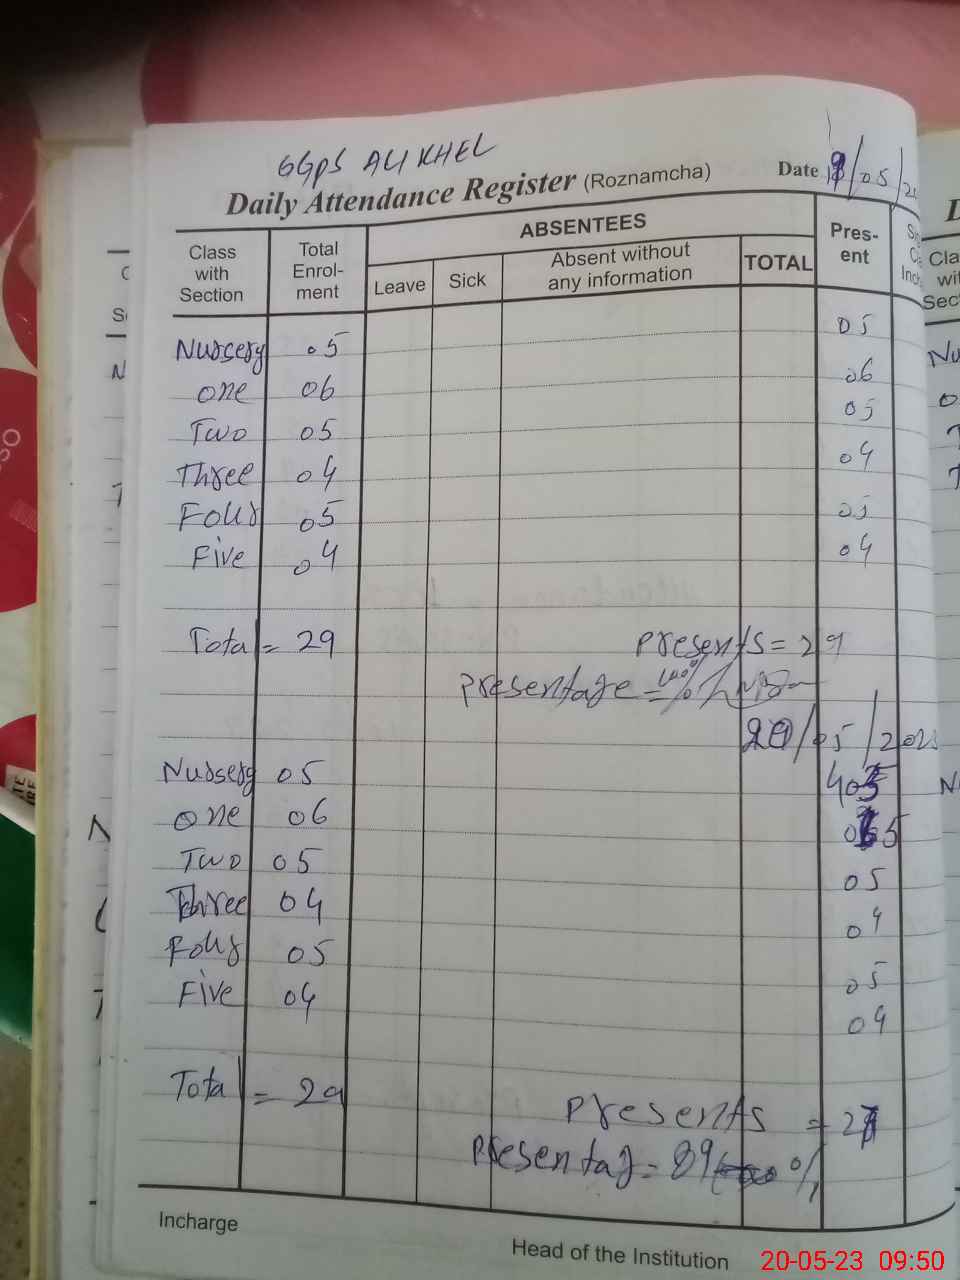 GGPS ALI KHEL
Daily Attendance Register (Roznamcha) Date /05/
Class with Section Total Enrol-ment ABSENTEES Pres-ent
Leave Sick Absent without any information TOTAL
Nursery 05 05
one 06 06
Two 05 05
Three 04 04
Four 05 05
Five 04 04
Total = 29 Presents = 29
Presentage = 100%
20/05/2023
Nursery 05
one 06
Two 05 05
Three 04 04
Four 05 05
Five 04 04
Total = 29 Presents =
Presentag = 89 %
Incharge
Head of the Institution
20-05-23 09:50